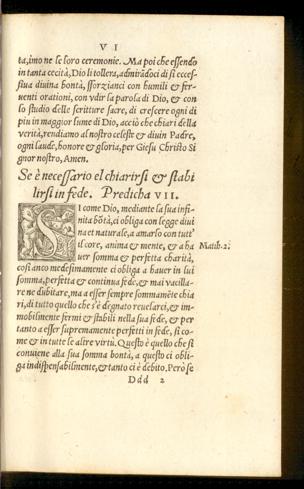 V I
ta, imo ne le loro ceremonie. Ma poi che essendo
in tanta cecità, Dio li tollera, admirãdoci di sì eccess-
siua diuina bontà, sforzianci con humili & fer-
uenti orationi, con vdir la parola di Dio, & con
lo studio delle scritture sacre, di crescere ogni di
piu in maggior lume di Dio, acciò che chiari della
verità, rendiamo al nostro celeste & diuin Padre,
ogni laude, honore & gloria, per Giesu Christo Si
gnor nostro, Amen.
Se è necessario el chiarirsi & stabi
lirsi in fede. Predicha VII.
SI come Dio, mediante la sua infi-
nita bõtà, ci obliga con legge diui
na et naturale, a amarlo con tutt'
il core, anima & mente, & a ha
Matth. 2:
uer somma & perfetta charità,
così anco medesimamente ci obliga a hauer in lui
somma, perfetta & continua fede, & mai vacilla-
re ne dubitare, ma a esser sempre sommamẽte chia
ri, di tutto quello che s'è degnato reuelarci, & im-
mobilmente fermi & stabili nella sua fede, & per
tanto a esser supremamente perfetti in fede, sì co-
me & in tutte le altre virtù. Questo è quello che si
conuiene alla sua somma bontà, a questo ci obli-
ga indispensabilmente, & tanto ci è debito. Però se
Ddd 2